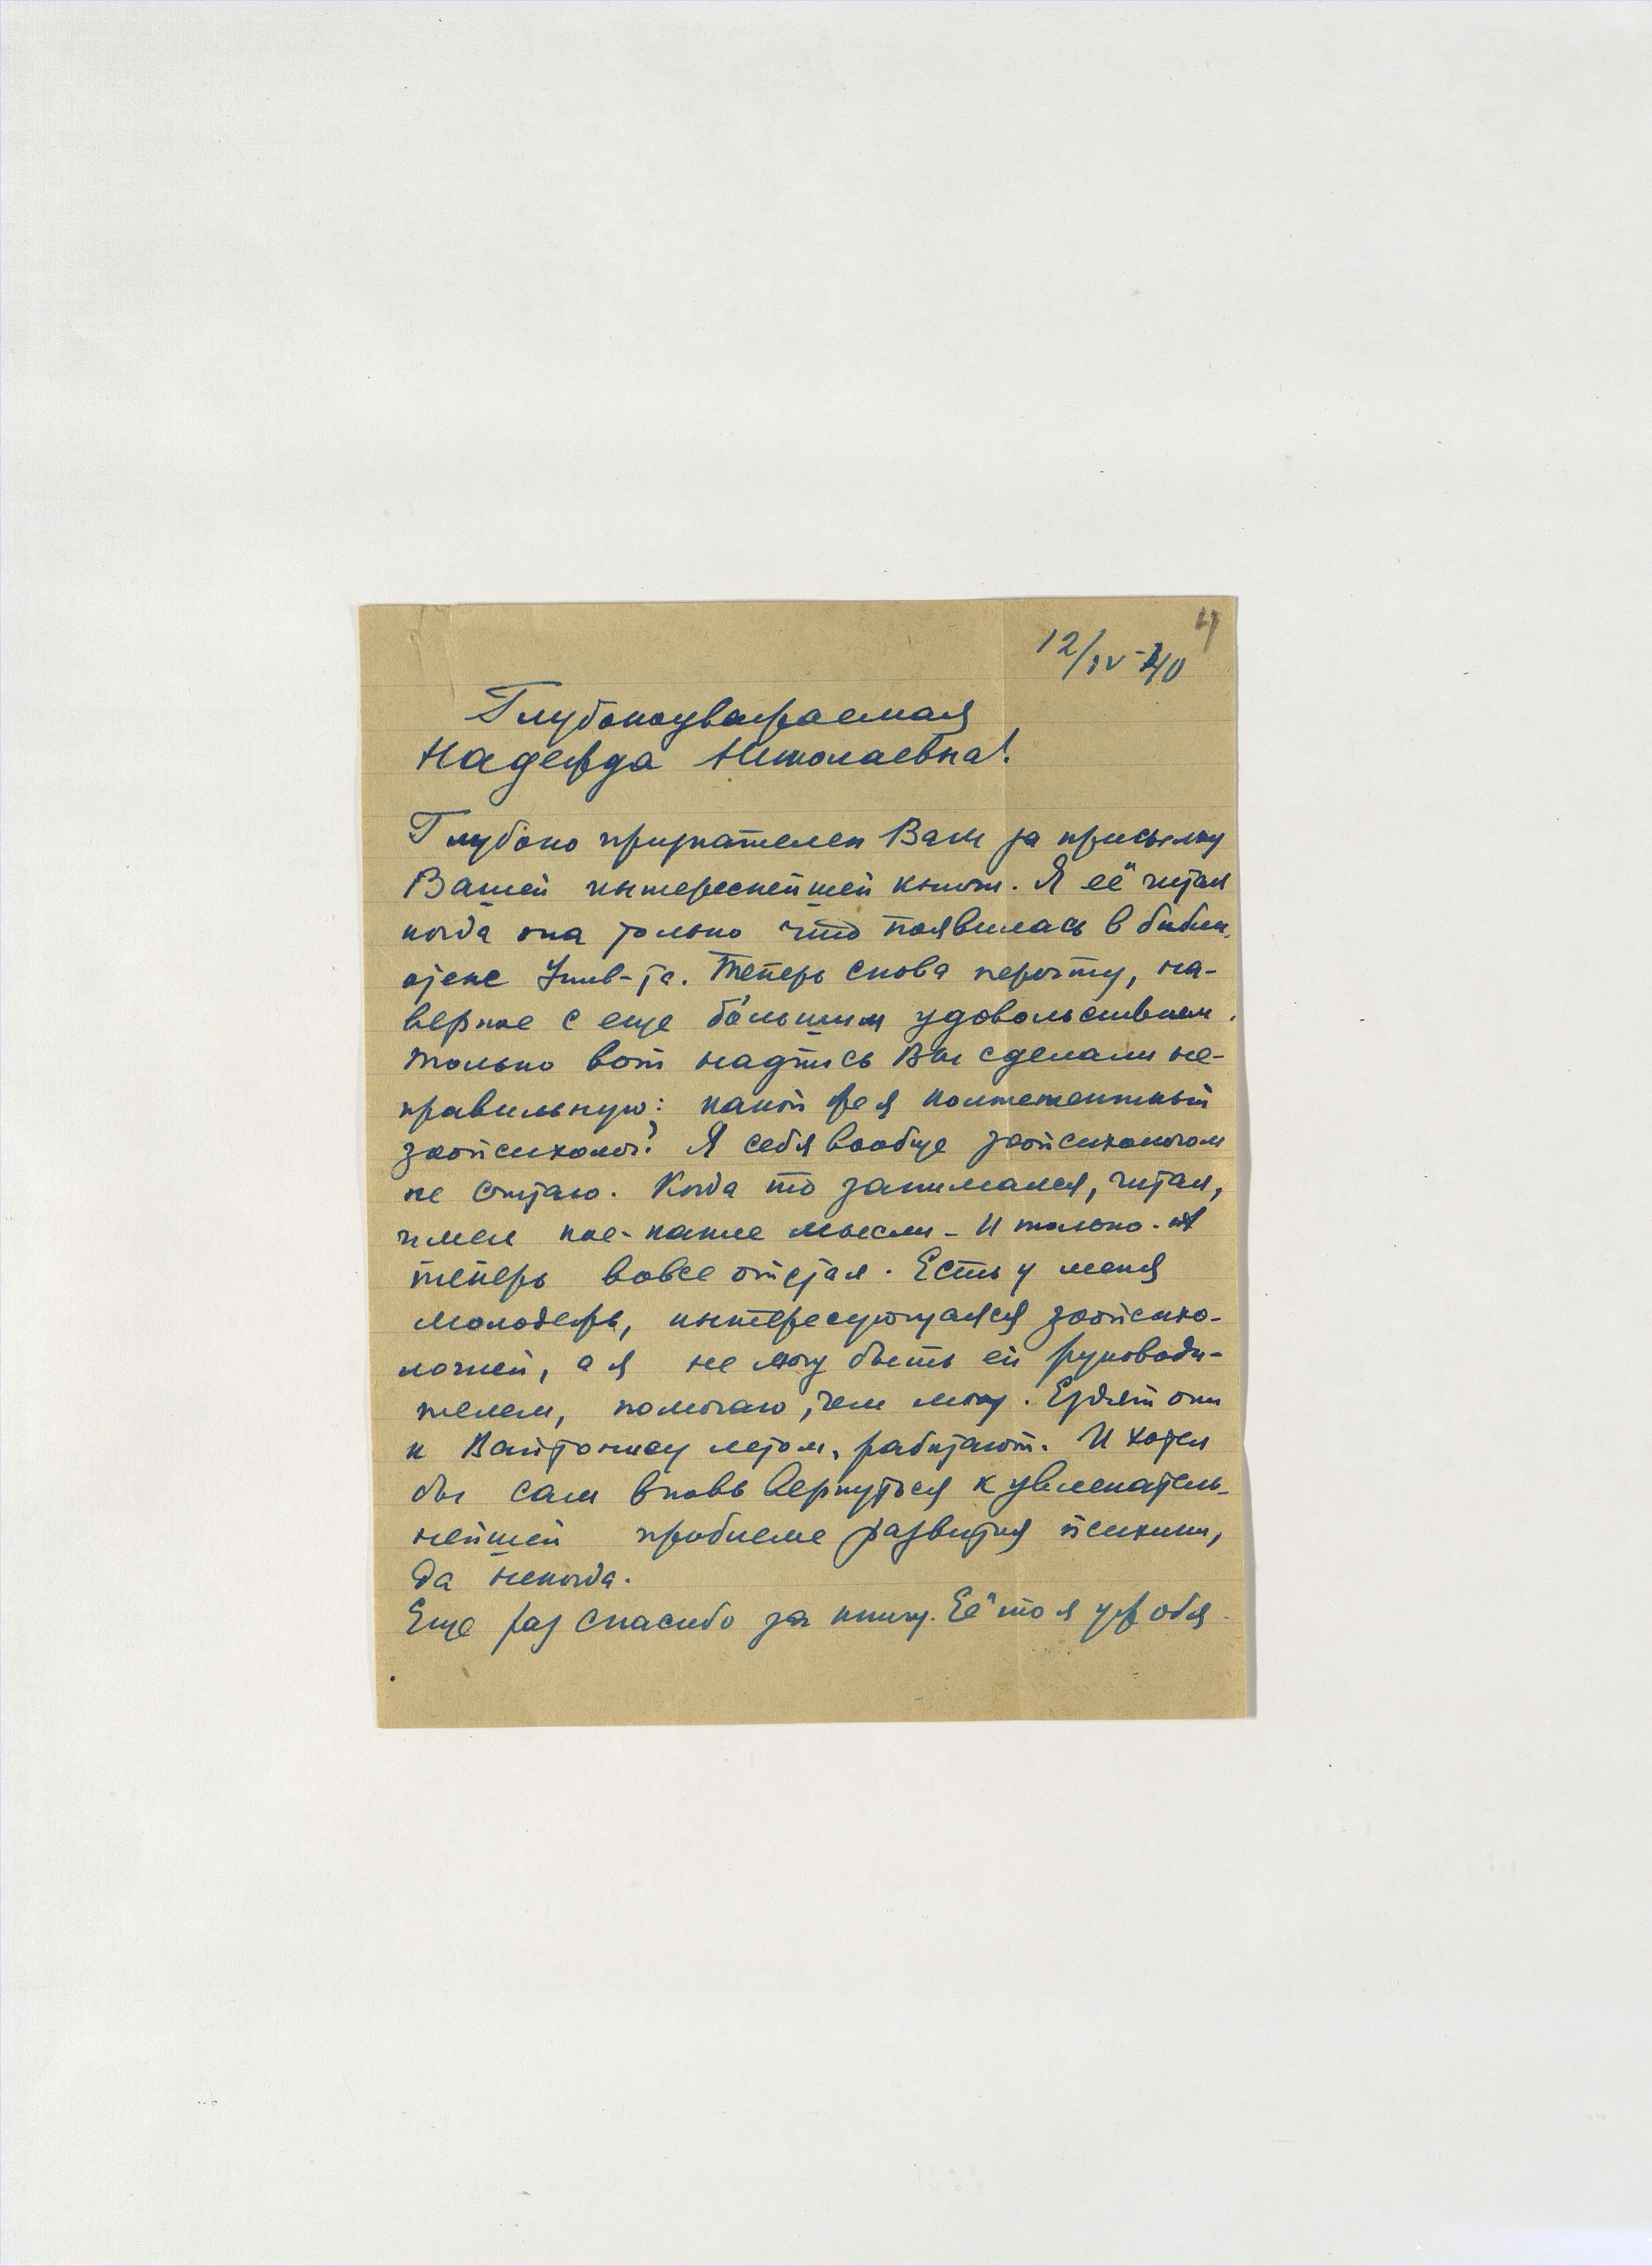 4
12/IV-40
Глубокоуважаемая
Надежда Николаевна!
Глубоко признателен Вам за присылку
Вашей интереснейшей книги. Я её читал
когда она только что появилась в библи-
отеке Унив-та. Теперь снова перечту, на-
верное с еще бо́льшим удовольствием.
Только вот надпись Вы сделали не-
правильную: какой же я
зоопсихолог? Я себя вообще зоопсихологом
не считаю. Когда то занимался, читал,
имел кое-какие мысли - и только. А
теперь вовсе отстал. Есть у меня
молодежь, интересующаяся зоопсихо-
логией, а я не могу быть ей руководи-
телем, помогаю, чем могу. Ездят они
к Войтонису летом, работают. И хотел
бы сам вновь вернуться к увлекатель-
нейшей проблеме развития психики,
да некогда.
Еще раз спасибо за книгу. Её то я уж обя-